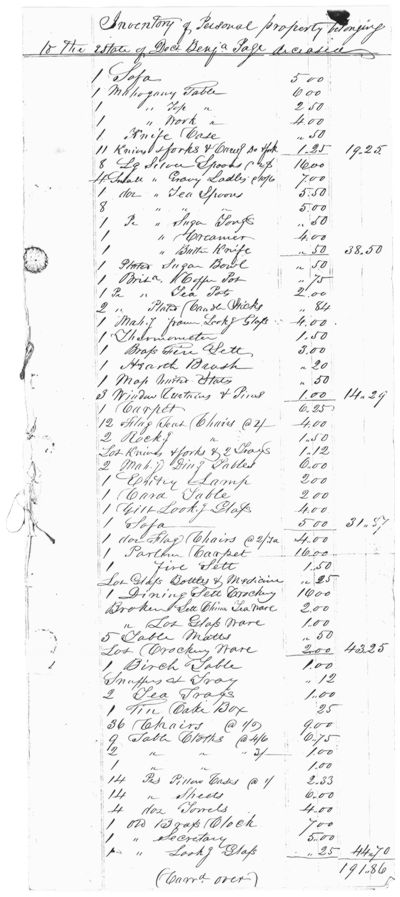 Inventory of Personal property belonging
to the estate of Doct Benja Page deceased
1 Sofa 5.00
1 Mahogany Table 6.00
1 " Top " 2.50
1 " Work " 4.00
1 Knife Case " 50
11 Knives & forks & Carvg Do & fork 1.25 19.25
8 Lg Silver Spoons 16.00
4 Small " Gravy Ladles 7.00
1 doz " Tea Spoons 5.50
8 " " " 5.00
1 Pr " Sugar Tongs " 50
1 " Creamier 4.00
1 " Butter Knife " 50 38.50
1 Plated Sugar Bowl " 50
1 Brita Coffee Pot " 75
1 Pr " Tea Pots 2.00
2 " Plated Candle Sticks " 84
1 Mahy fram Lookg Glass 4.00
1 Thermometer 1.50
1 Brass Fire Sett 3.00
1 Hearth Brush " 20
1 Map United States " 50
3 Window Curtains & Pins 1.00 14.29
1 Carpet 6.25
12 Flag Seat Chairs @ 2/ 4.00
2 Rockg " 1.50
Lot Knives & forks & 2 Trays 1.12
2 Mahy Ding Tables 6.00
1 Entry Lamp 2.00
1 Card Table 2.00
1 Gilt Lookg Glass 4.00
1 Sofa 5.00 31.87
1 doz Flag Chairs @ 2/ 4.00
1 Parlour Carpet 16.00
1 Fire Sett 1.50
Lot Glass Bottles & Medicine " 25
1 Dining Sett Crockry 16.00
Broken Sett China Tea Ware 2.00
" Lot Glass Ware 1.00
5 Table Matts " 50
Lot Crockery Ware 2.00 43.25
1 Birch Table 1.00
Snuffers & Tray " 12
2 Tea Trays 1.00
1 Tin Cake Box 25
36 Chairs @ 1/6 9.00
9 Table Cloths @ 4/6 6.75
2 " " " 3/ 1.00
1 " " 1.00
14 Prs Pillow Cases @ 1/ 2.33
14 " Sheets 6.00
4 doz Towels 4.00
1 old Brass Clock 7.00
1 " Secretary 5.00
1 " Lookg Glass " 25 44.70
191.86
(Carrd over)